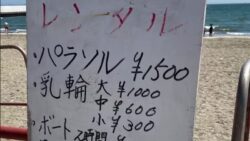 レンタル
・パラソル ¥1500
・乳輪 大 ¥1000
中 ¥600
小 ¥300
・ボート 2時間